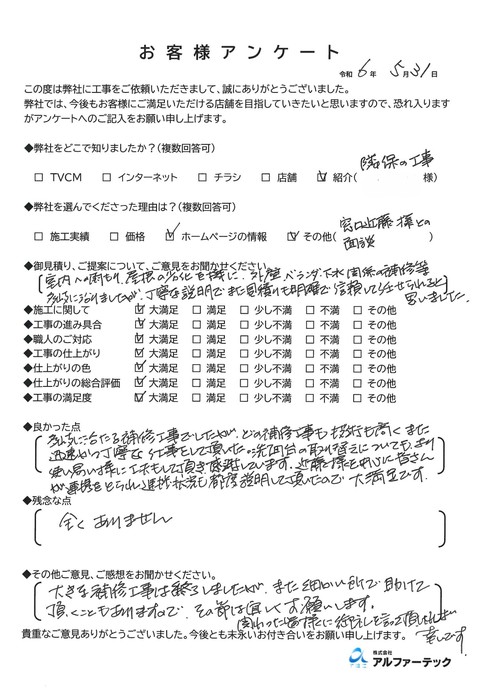 お客様アンケート
令和 6 年 5 月 31 日
この度は弊社に工事をご依頼いただきまして、誠にありがとうございました。
弊社では、今後もお客様にご満足いただける店舗を目指していきたいと思いますので、恐れ入ります
がアンケートへのご記入をお願い申し上げます。
◆弊社をどこで知りましたか?(複数回答可)
隣保の工事
□ TVCM □ インターネット □ チラシ □ 店舗 ☑ 紹介( 様)
◆弊社を選んでくださった理由は?(複数回答可)
窓口近藤様との
□ 施工実績 □ 価格 ☑ ホームページの情報 ☑ その他( 面談 )
◆御見積り、ご提案について、ご意見をお聞かせください。
室内への雨もり、屋根の劣化を機に、外壁、ベランダ、下水関係の補修等
多岐に渡りましたが、丁寧な説明でまた見積りも明確で信頼して任せられると
思いました。
◆施工に関して ☑ 大満足 □ 満足 □ 少し不満 □ 不満 □ その他
◆工事の進み具合 ☑ 大満足 □ 満足 □ 少し不満 □ 不満 □ その他
◆職人のご対応 ☑ 大満足 □ 満足 □ 少し不満 □ 不満 □ その他
◆工事の仕上がり ☑ 大満足 □ 満足 □ 少し不満 □ 不満 □ その他
◆仕上がりの色 ☑ 大満足 □ 満足 □ 少し不満 □ 不満 □ その他
◆仕上がりの総合評価 ☑ 大満足 □ 満足 □ 少し不満 □ 不満 □ その他
◆工事の満足度 ☑ 大満足 □ 満足 □ 少し不満 □ 不満 □ その他
◆良かった点
多岐に当たる補修工事でしたが、どの補修工事も技術も高くまた
迅速かつ丁寧な仕事をして頂いた。洗面台の取り替えについても、より
使い易い様に工夫をして頂き感謝しています。近藤様を中心に皆さん
が連携をとられ進捗状況も都度説明して頂いたので大満足です。
◆残念な点
全くありません
◆その他ご意見、ご感想をお聞かせください。
大きな補修工事は終了しましたが、また細かい所で助けて
頂くこともありますので、その節は宜しくお願いします。
関わった皆様に御礼を言って頂ければ
幸いです。
貴重なご意見ありがとうございました。今後とも末永いお付き合いをお願い申し上げます。
株式会社
アルファーテック